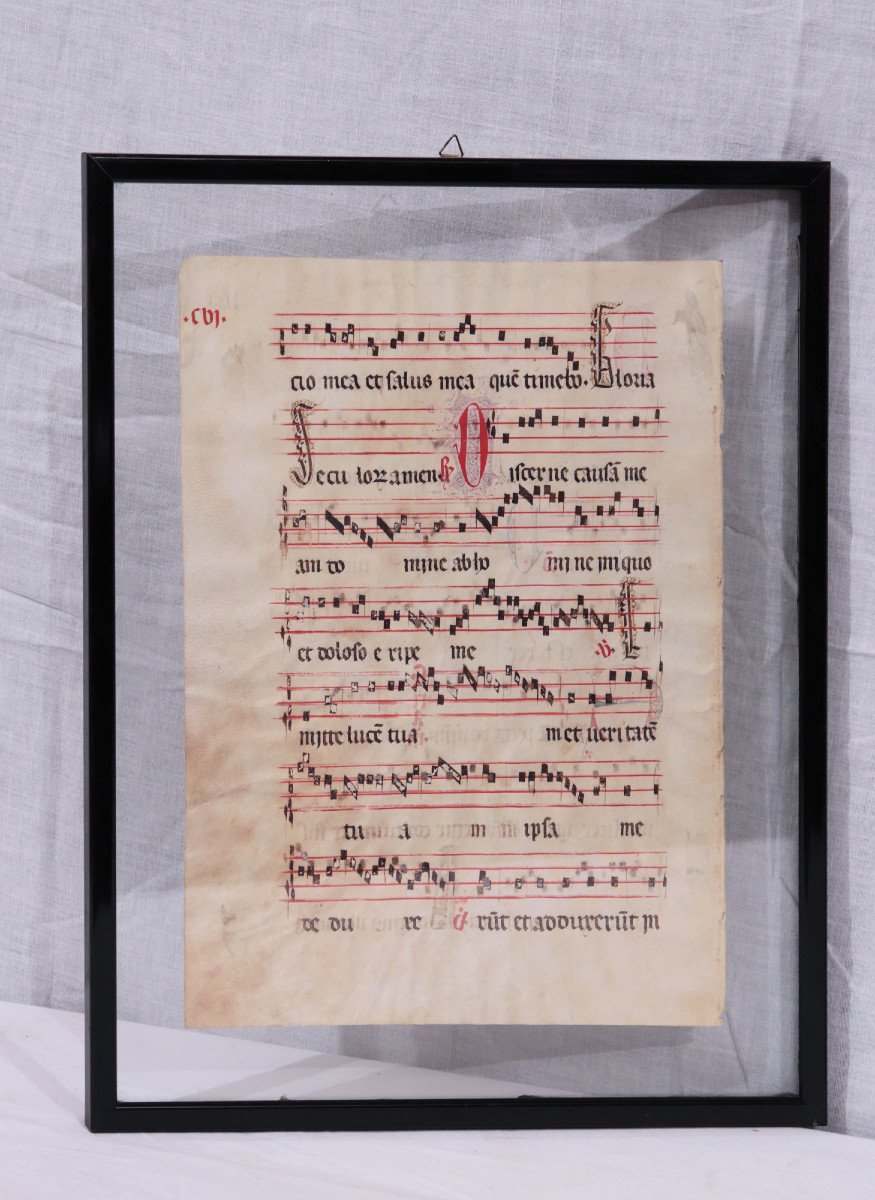 ·cvj·
cio mea et salus mea quē timebo. Gloria
Secu lorꝝ amen. ℟ Discerne causā me
am do mine ab ho mi ne iniquo
et doloso e ripe me ·℣· E
mitte lucē tua m et veritatē
tu a m ipsa me
de du xe rūt et adduxerūt in